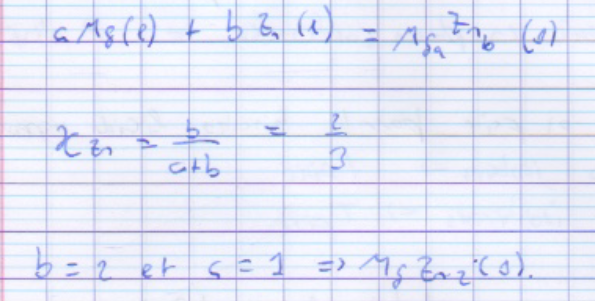 a Mg(l) + b Zn(l) = Mg_a Zn_b (s)
x_Zn = b/(a+b) = 2/3
b = 2 et a = 1 => MgZn_2 (s).